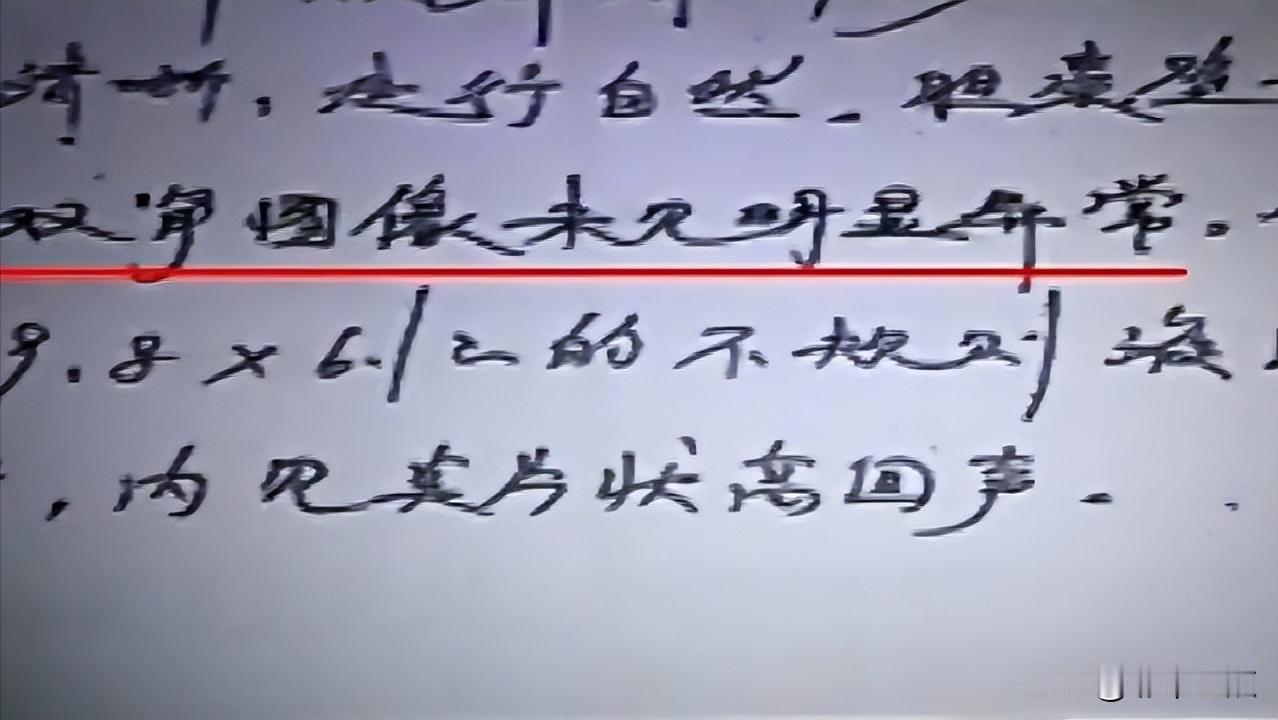 清晰，走行自然，胆囊壁
双肾图像未见明显异常。
9.8×6.1的不规则液
，内见点片状高回声。